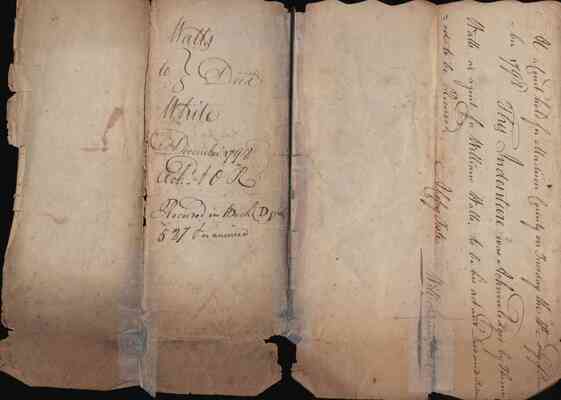 Watts
to } Deed
White
December 1798
Ack.d & O R
Recorded in Book D page
527 Examined
At a Court held for Madison County on Tuesday the 4th Day
1798 This Indenture was Acknowledged by
Watts as agent for William Watts to be his act and Deed
and to be Recorded
A Copy Teste Will